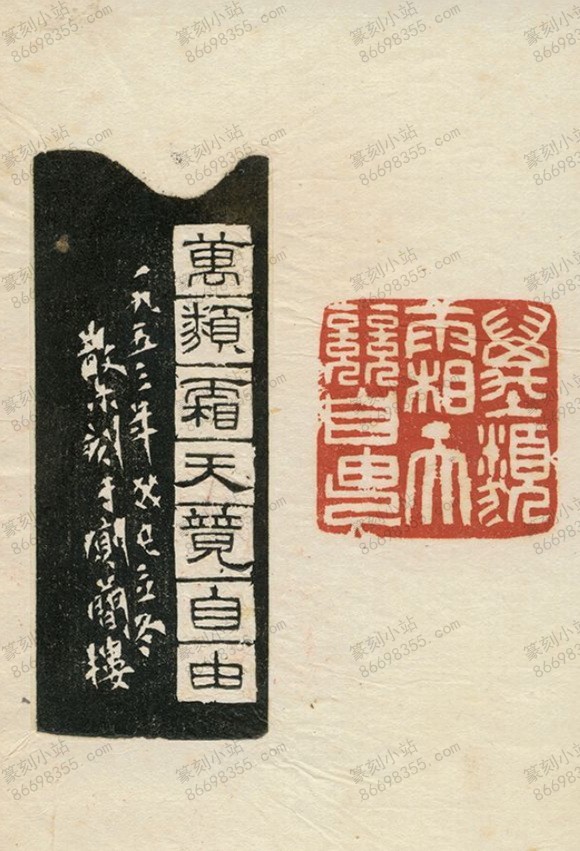 萬類
霜天
競自由
萬類霜天竟自由
一九五三年癸巳立冬
散木刻于廁簡樓
篆刻小站
86698355 .com